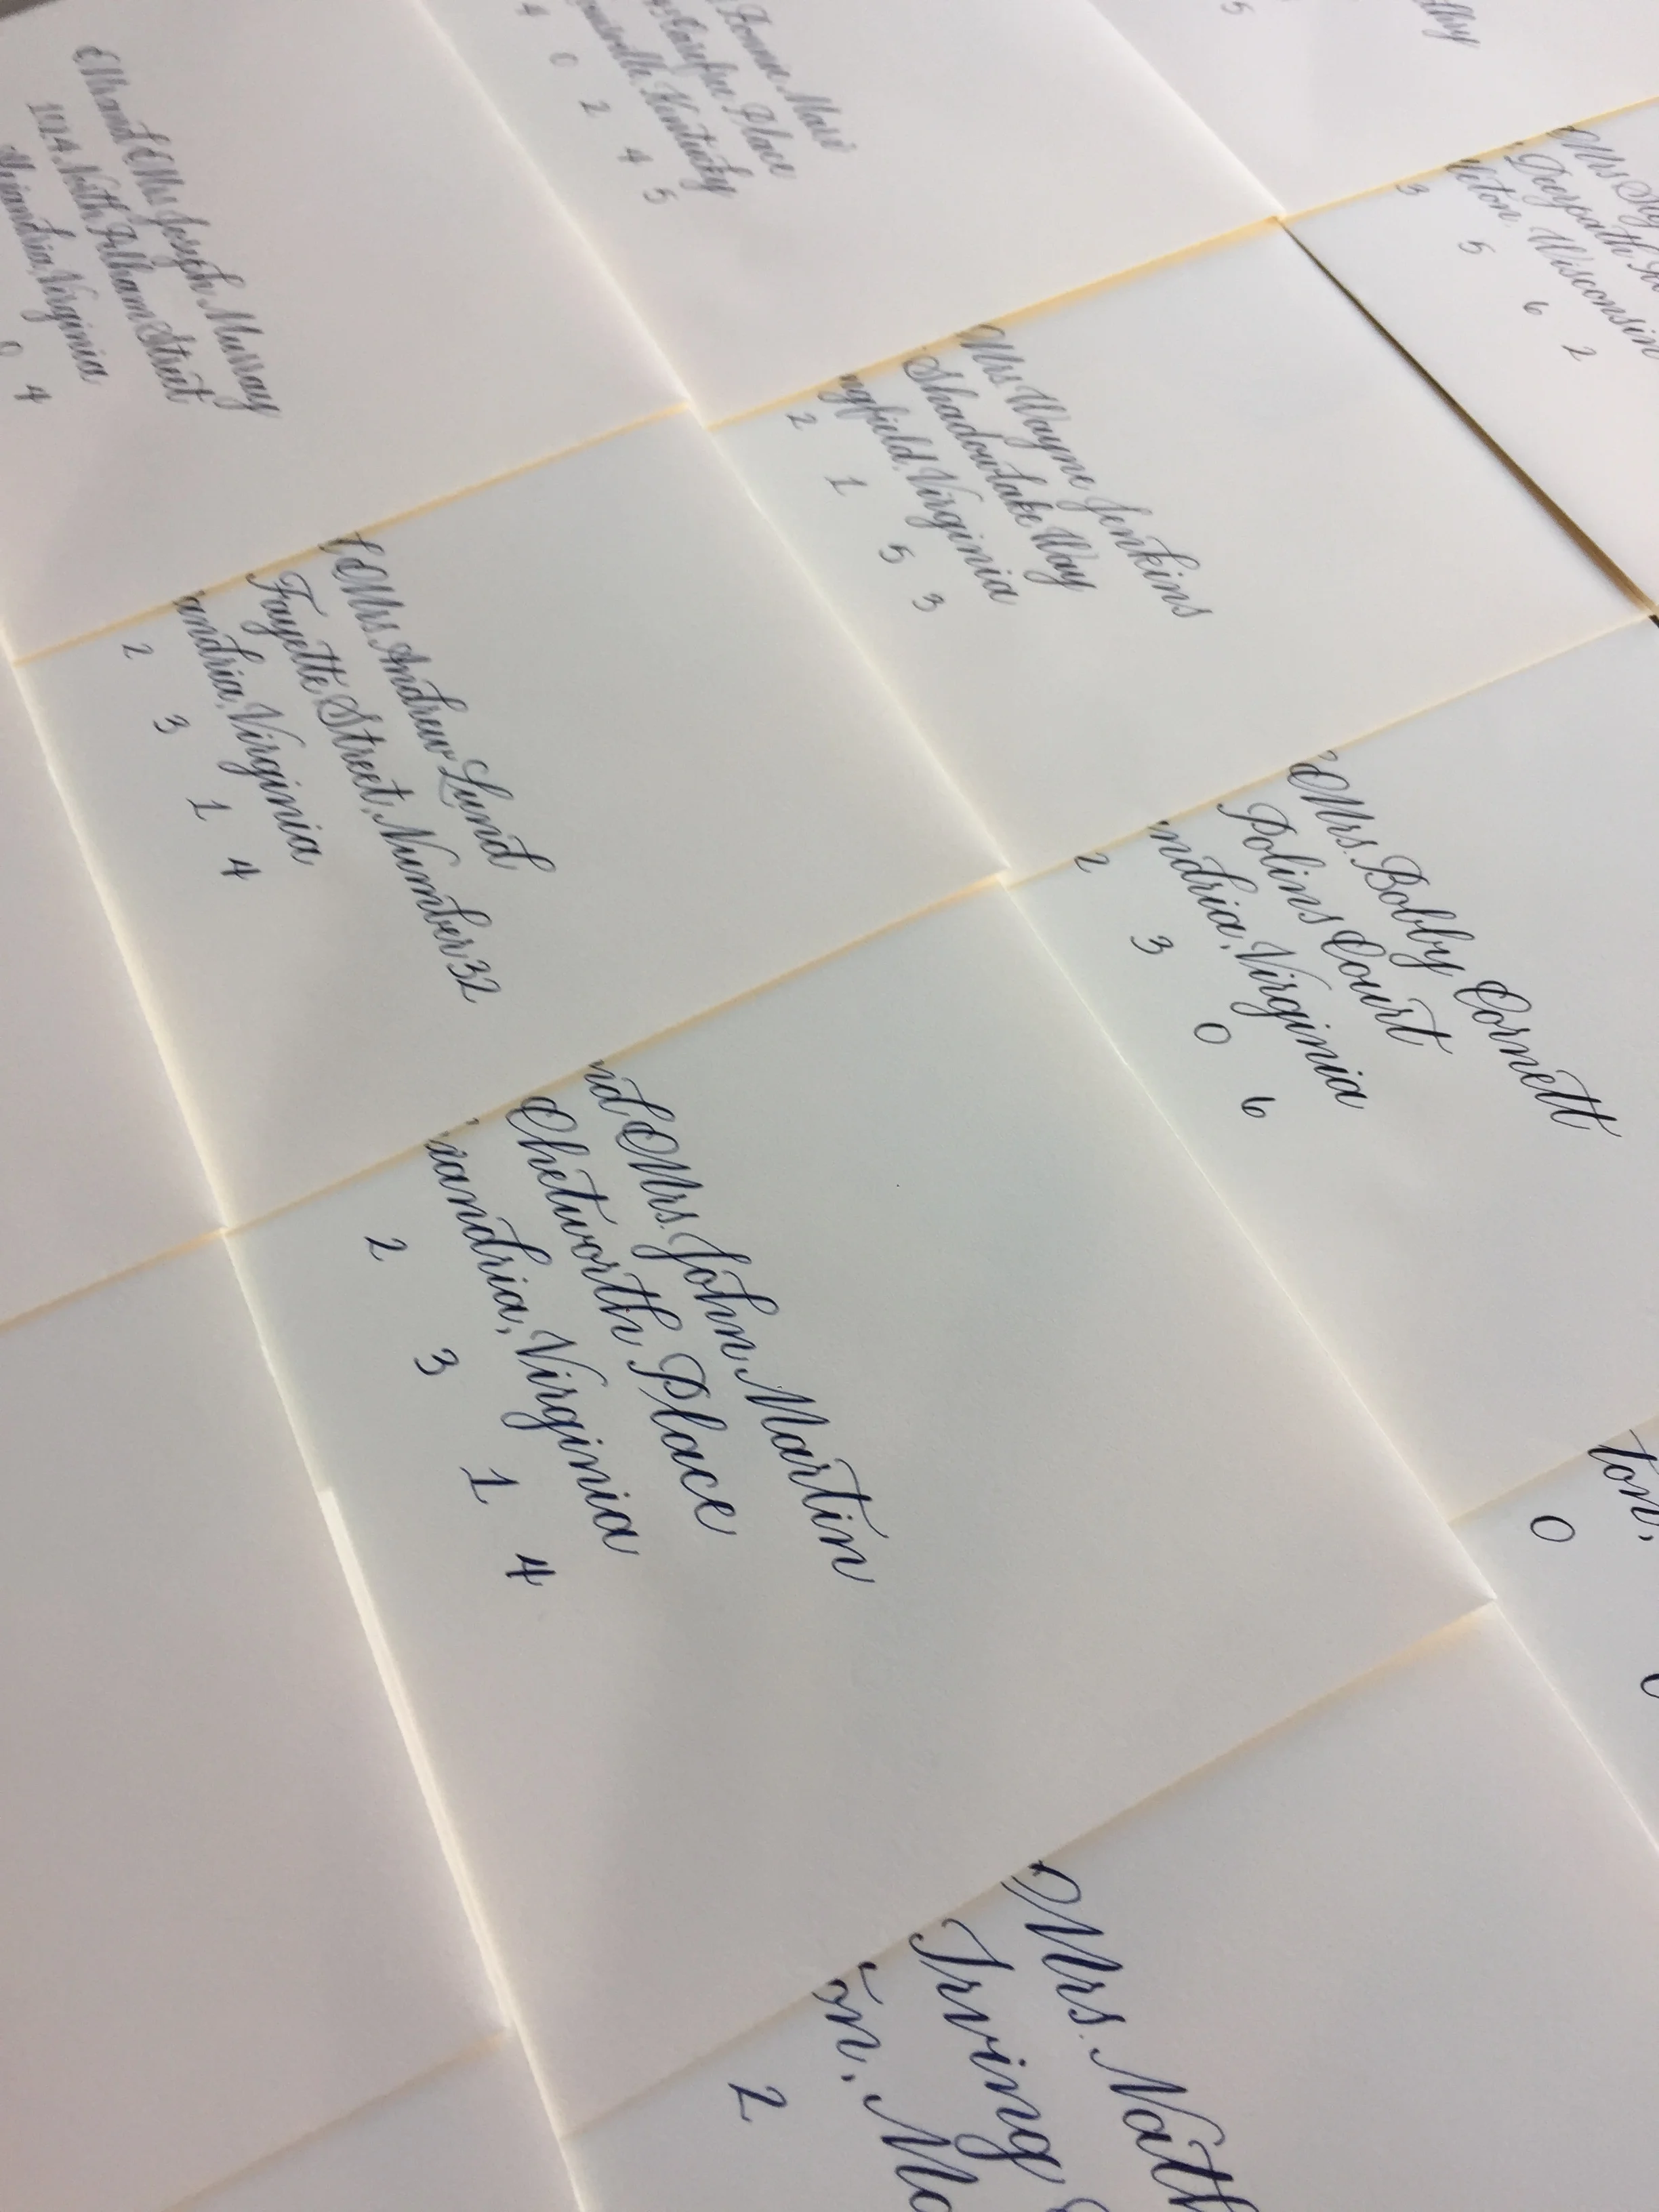 Mr and Mrs Joseph Murray
1024 North Pelham Street
Virginia
0 4
Place
Kentucky
4 0 2 4 5
5
Mrs
Deerpath
leton, Wisconsin
3 5 6 2
Mrs Wayne Jenkins
Shadowlake Way
ngfield, Virginia
2 1 5 3
Mrs. Andrew Lund
Fayette Street, Number 32
andria, Virginia
2 3 1 4
Mrs. Bobby Cornett
Polins Court
ndria, Virginia
2 3 0 6
nd Mrs. John Martin
Chetworth Place
xandria, Virginia
2 3 1 4
ton,
0
Mrs. Nath
Irving
on, Ma
2